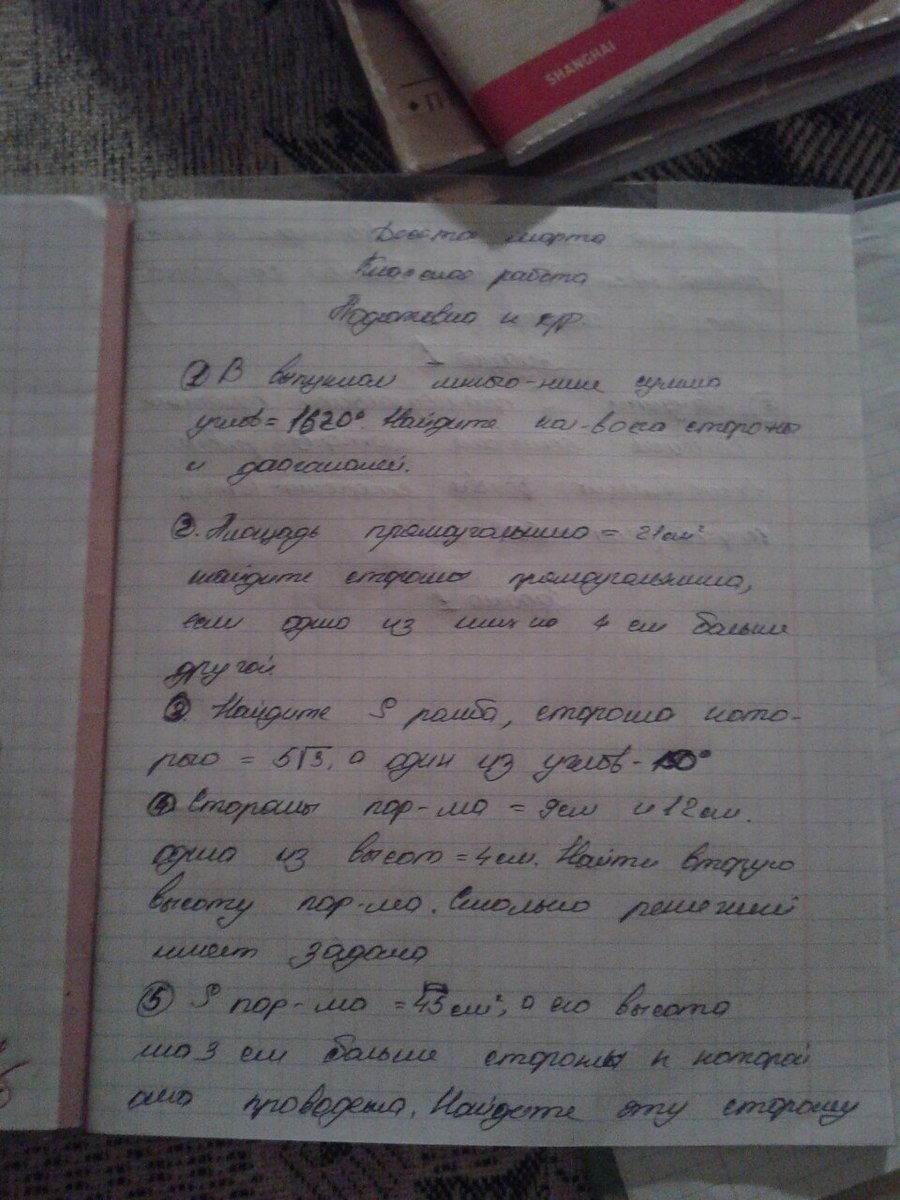 SHANGHAI
П
марта
Классная работа
Подготовка к к/р.
① В выпуклом много-нике сумма
углов = 1620°. Найдите кол-во сторон
и диагоналей.
②. Площадь прямоугольника = 21 см²
найдите стороны прямоугольника,
если одна из них на 4 см больше
другой.
③ Найдите S ромба, сторона кото-
рого = 5√3, а один из углов -
④ Стороны пар-ма = 9см и 12см.
одна из высот = 4см. Найти вторую
высоту пар-ма. Сколько решений
имеет задача
⑤ S пар-ма = см², а его высота
на 3 см больше стороны к которой
она проведена. Найдите эту сторону